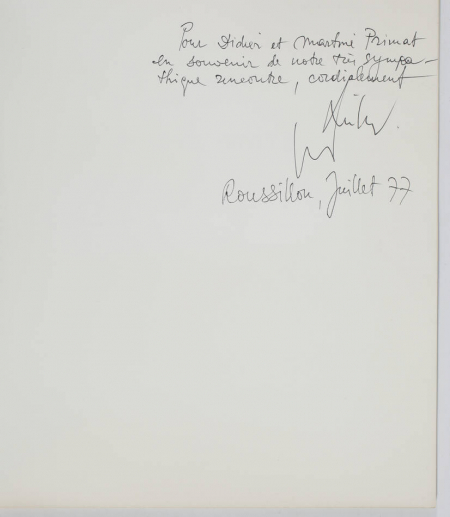 Pour Didier et Martine Primat
en souvenir de notre très sympa-
thique rencontre, cordialement
Roussillon, Juillet 77